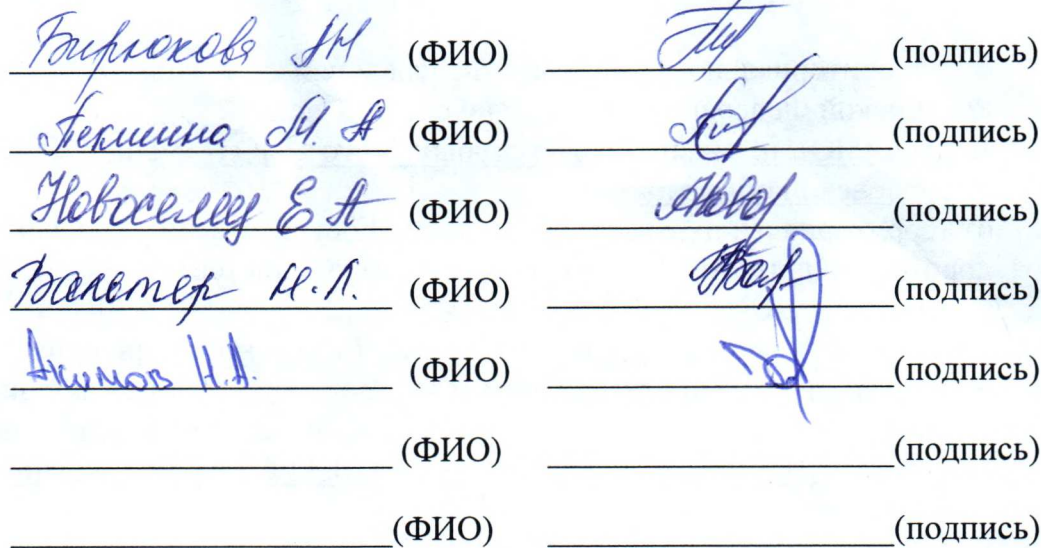 Бирюкова АН (ФИО) (подпись)
Пекшина М. А (ФИО) (подпись)
Новоселец Е А (ФИО) (подпись)
Вальтер Н.Л. (ФИО) (подпись)
Акимов Н.А. (ФИО) (подпись)
(ФИО) (подпись)
(ФИО) (подпись)